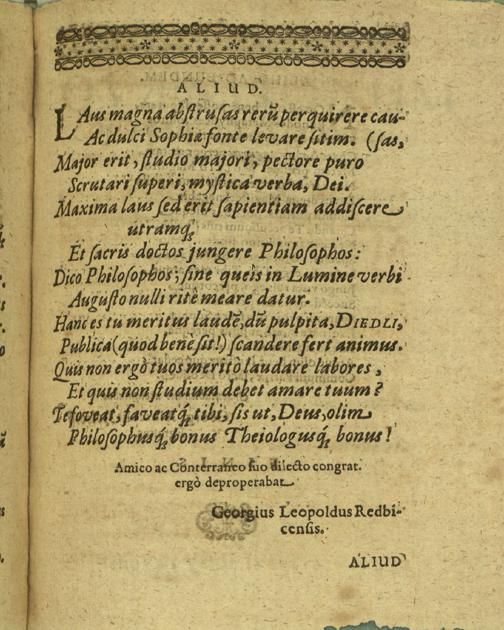 ALIUD.
LAus magna abstrusas rerũ perquirere cau-
Ac dulci Sophiæ fonte levare sitim. (sas,
Major erit, studio majori, pectore puro
Scrutari superi, mystica verba, Dei.
Maxima laus sed erit sapientiam addiscere
utramq́;
Et sacris doctos jungere Philosophos:
Dico Philosophos; sine queis in Lumine verbi
Augusto nulli rite meare datur.
Hanc es tu meritus laudẽ, dũ pulpita, DIEDLI,
Publica (quod benè sit!) scandere fert animus.
Quis non ergò tuos meritò laudare labores,
Et quis non studium debet amare tuum?
Te foveat, faveatq́; tibi, sis ut, Deus, olim
Philosophusq́; bonus Theiologusq́; bonus!
Amico ac Conterraneo suo dilecto congrat.
ergò deproperabat
Georgius Leopoldus Redbi-
censis.
ALIUD